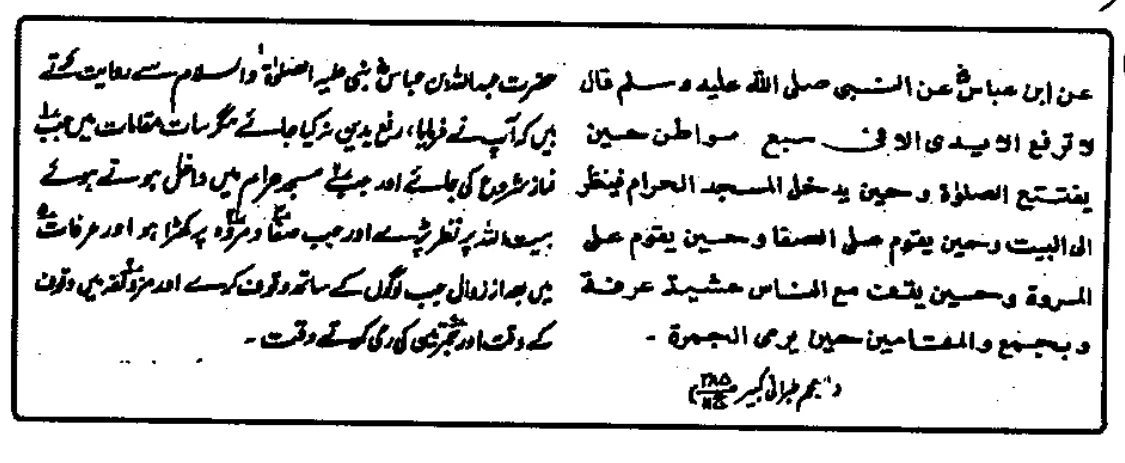 عن ابن عباسؓ عن النبی صلی اللہ علیہ وسلم قال
لا ترفع الایدی الا فی سبع مواطن حین
یفتتح الصلوٰۃ وحین یدخل المسجد الحرام فینظر
الی البیت وحین یقوم علی الصفا وحین یقوم علی
المروۃ وحین یقف مع الناس عشیۃ عرفۃ
وبجمع والمقامین حین یرمی الجمرۃ ۔
(معجم طبرانی کبیر
حضرت عبداللہ بن عباسؓ نبی علیہ الصلوٰۃ والسلام سے روایت کرتے
ہیں کہ آپ نے فرمایا، رفع یدین نہ کیا جائے مگر سات مقامات میں جب
نماز شروع کی جائے اور جب مسجد حرام میں داخل ہوتے ہوئے
بیت اللہ پر نظر پڑے اور جب صفا و مروہ پر کھڑا ہو اور عرفات
میں بعد از زوال جب لوگوں کے ساتھ وقوف کرے اور مزدلفہ میں وقوف
کے وقت اور جمرتین کی رمی کرتے وقت ۔